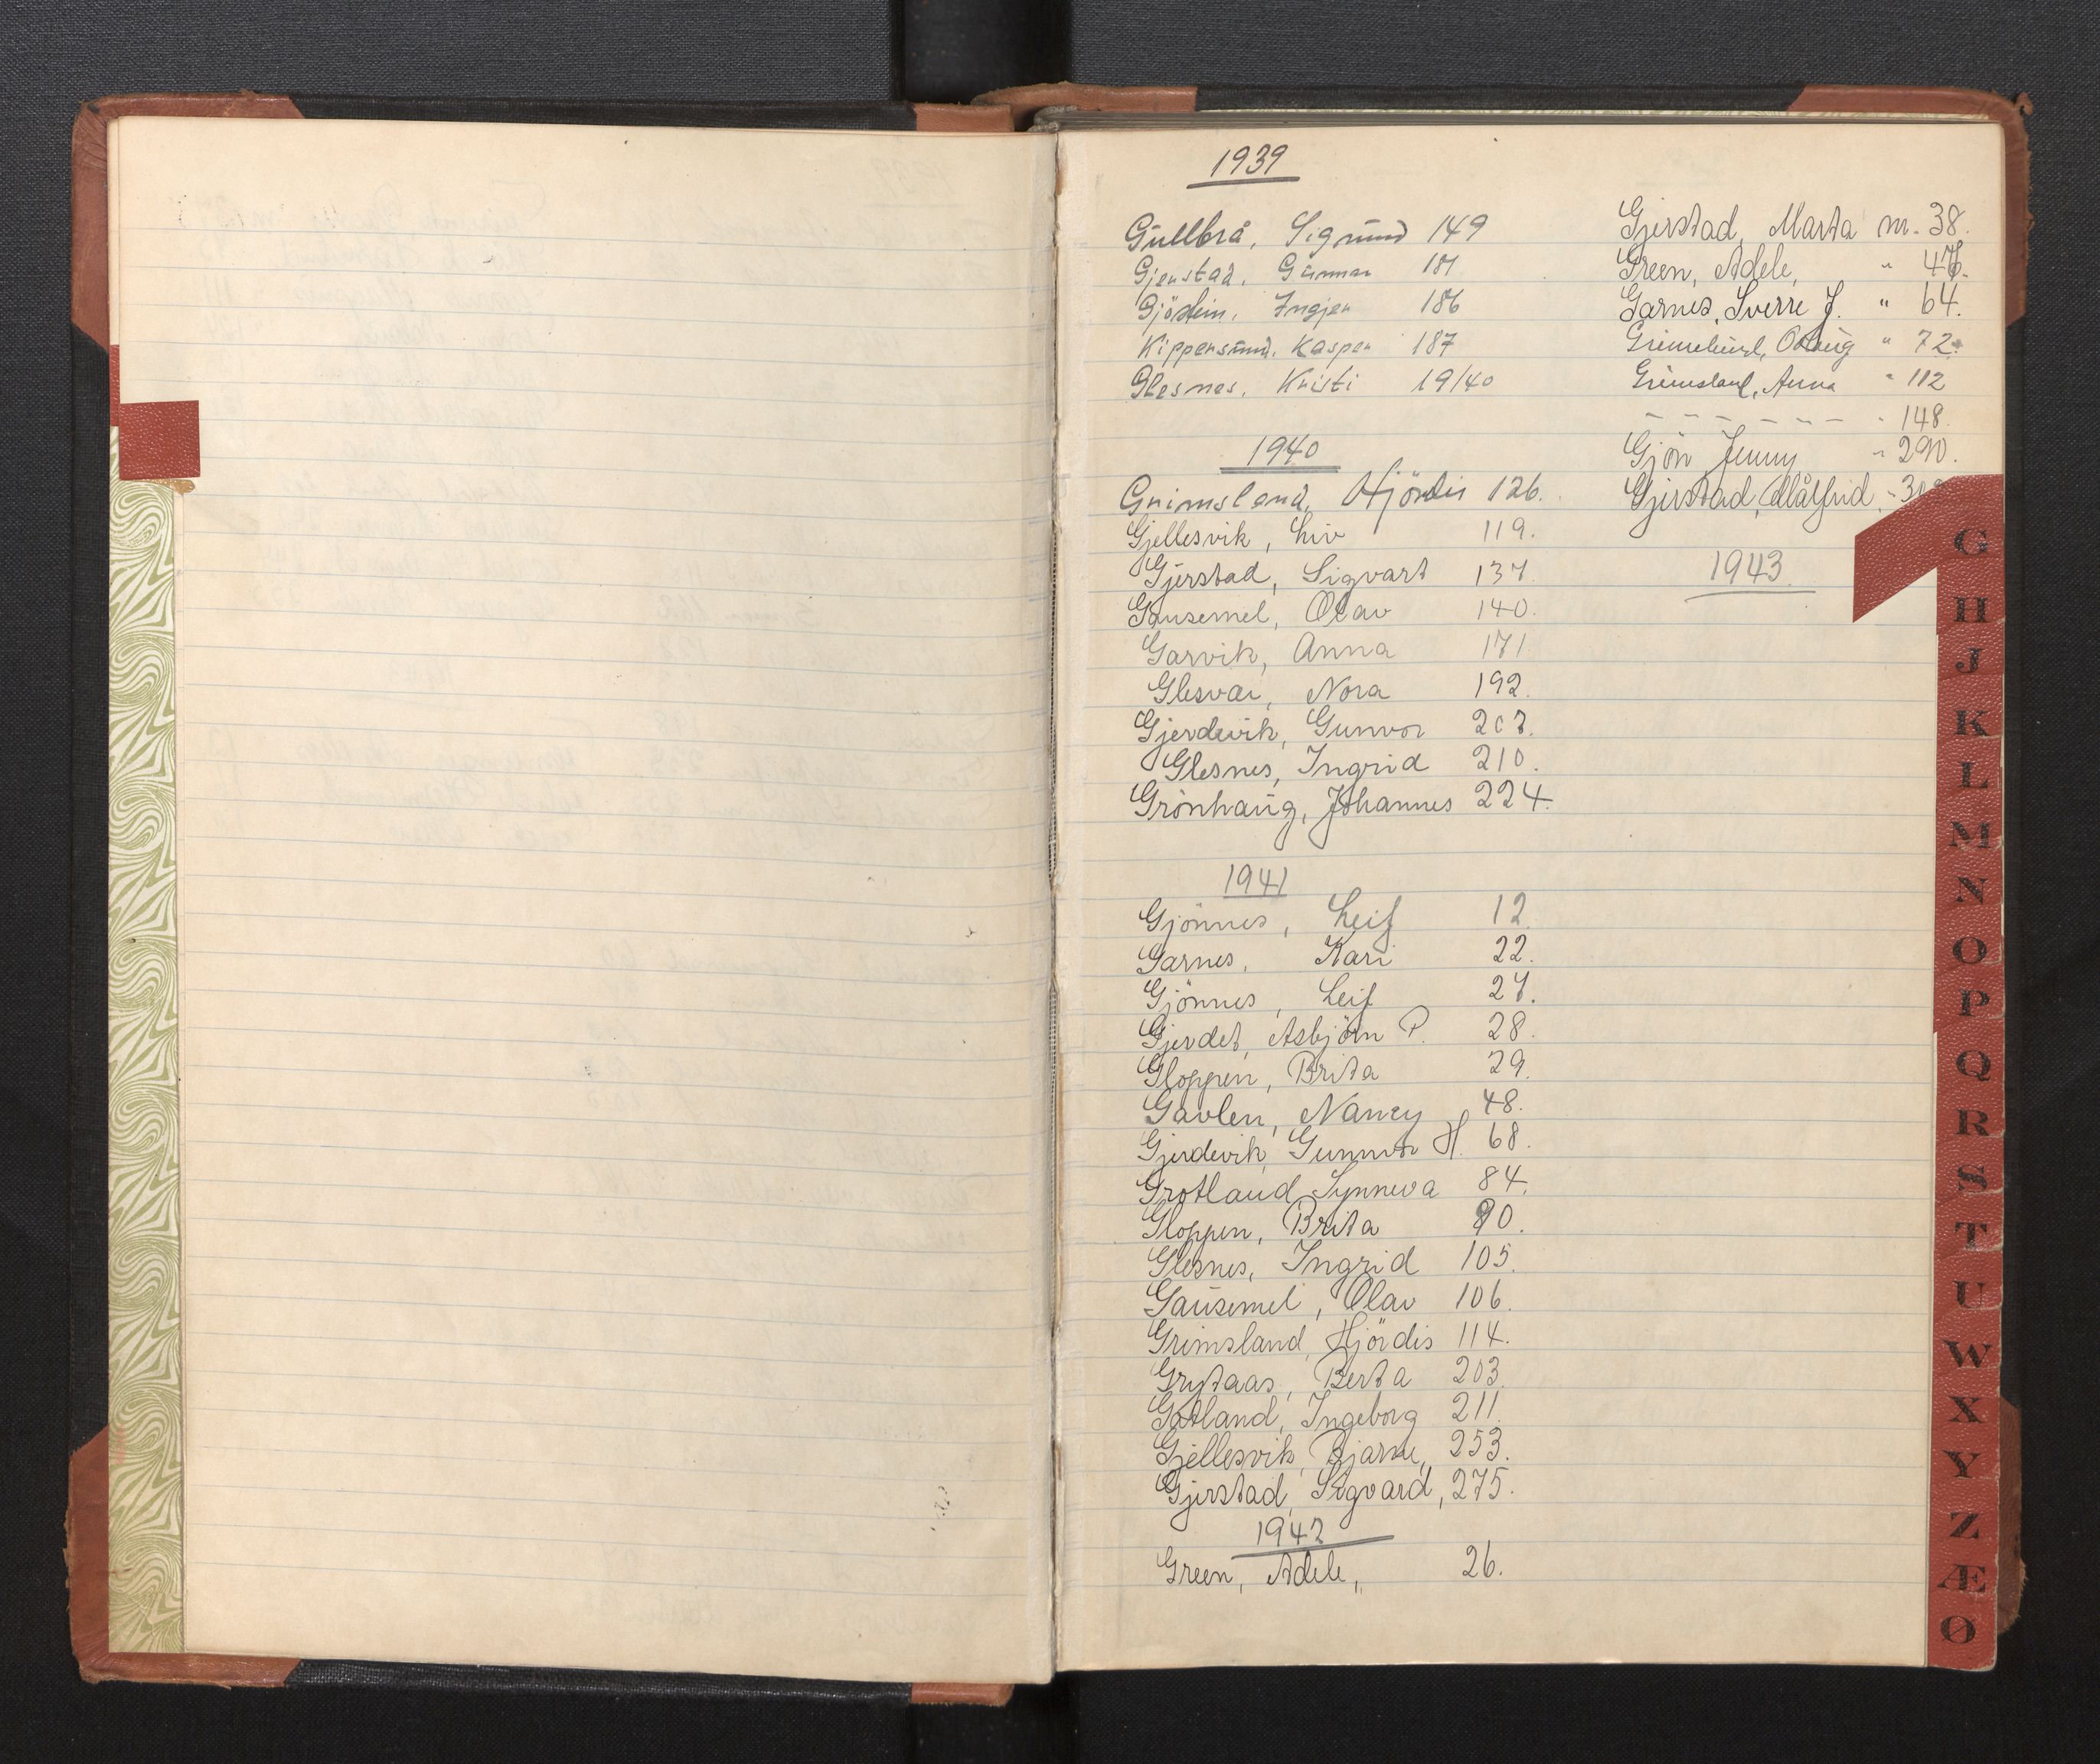 1939
Gullbrå, Sigmund 149
Gjerstad, Gunnar 181
Gjöstein, Ingjer 186
Kippersund, Kasper 187
Glesnes, Kristi 19/40
1940
Grimsland, Hjördis 126.
Gjellesvik, Liv 119.
Gjerstad, Sigvart 137
Gausemel, Olav 140.
Garvik, Anna 171
Glesvar, Nora 192.
Gjerdevik, Gunvor 207.
Glesnes, Ingrid 210.
Grönhaug, Johannes 224.
1941
Gjönnes, Leif 12
Garnes, Kari 22.
Gjönnes, Leif 27.
Gjerdet, Asbjörn P. 28.
Gloppen, Brita 29.
Gavlen, Nancy 48.
Gjerdevik, Gunnvor H. 68.
Grotland Synneva 84.
Gloppen, Brita 90.
Glesnes, Ingrid 105.
Gausemel, Olav 106.
Grimsland, Hjördis 114.
Grytaas, Berta 203
Gotland, Ingeborg 211
Gjellesvik, Bjarne, 253.
Gjerstad, Sigvard, 275.
1942
Green, Adele, 26.
Gjerstad, Marta nr. 38.
Green, Adele, " 47.
Garnes, Sverre J. " 64.
Grimelund, " 72.
Grimsland, Anna " 112
- - - - - - - 148.
Gjön Jenny " 290.
Gjerstad, Målfrid
1943.
G
H
J
K
L
M
N
O
P
Q
R
S
T
U
W
X
Y
Z
Æ
Ø